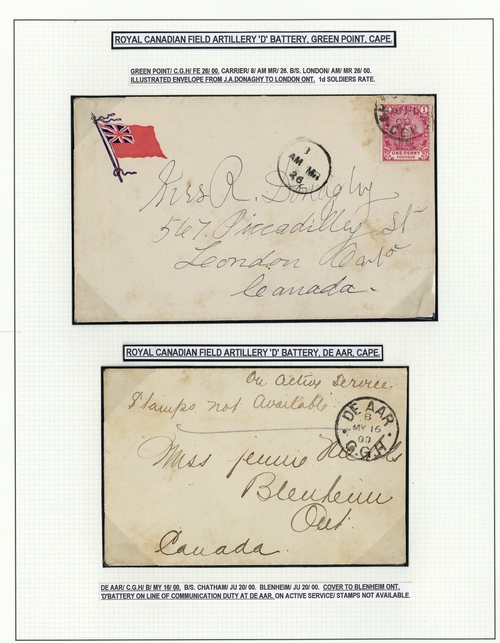 ROYAL CANADIAN FIELD ARTILLERY 'D' BATTERY, GREEN POINT, CAPE.
GREEN POINT/ C.G.H/ FE 26/ 00. CARRIER/ 8/ AM MR/ 26. B/S. LONDON/ AM/ MR 26/ 00.
ILLUSTRATED ENVELOPE FROM J.A.DONAGHY TO LONDON ONT, 1d SOLDIERS RATE.
ONE PENNY
POSTAGE
AM MR
26
Mrs R. Donaghy
567 Piccadilley St
London Onto
Canada.
ROYAL CANADIAN FIELD ARTILLERY 'D' BATTERY, DE AAR, CAPE.
On Active Service.
Stamps not Available
DE AAR
B
MY 16
00
C.G.H
Miss Jennie
Blenheim
Ont.
Canada.
DE AAR/ C.G.H/ B/ MY 16/ 00. B/S. CHATHAM/ JU 20/ 00. BLENHEIM/ JU 20/ 00. COVER TO BLENHEIM ONT,
'D'BATTERY ON LINE OF COMMUNICATION DUTY AT DE AAR. ON ACTIVE SERVICE/ STAMPS NOT AVAILABLE.